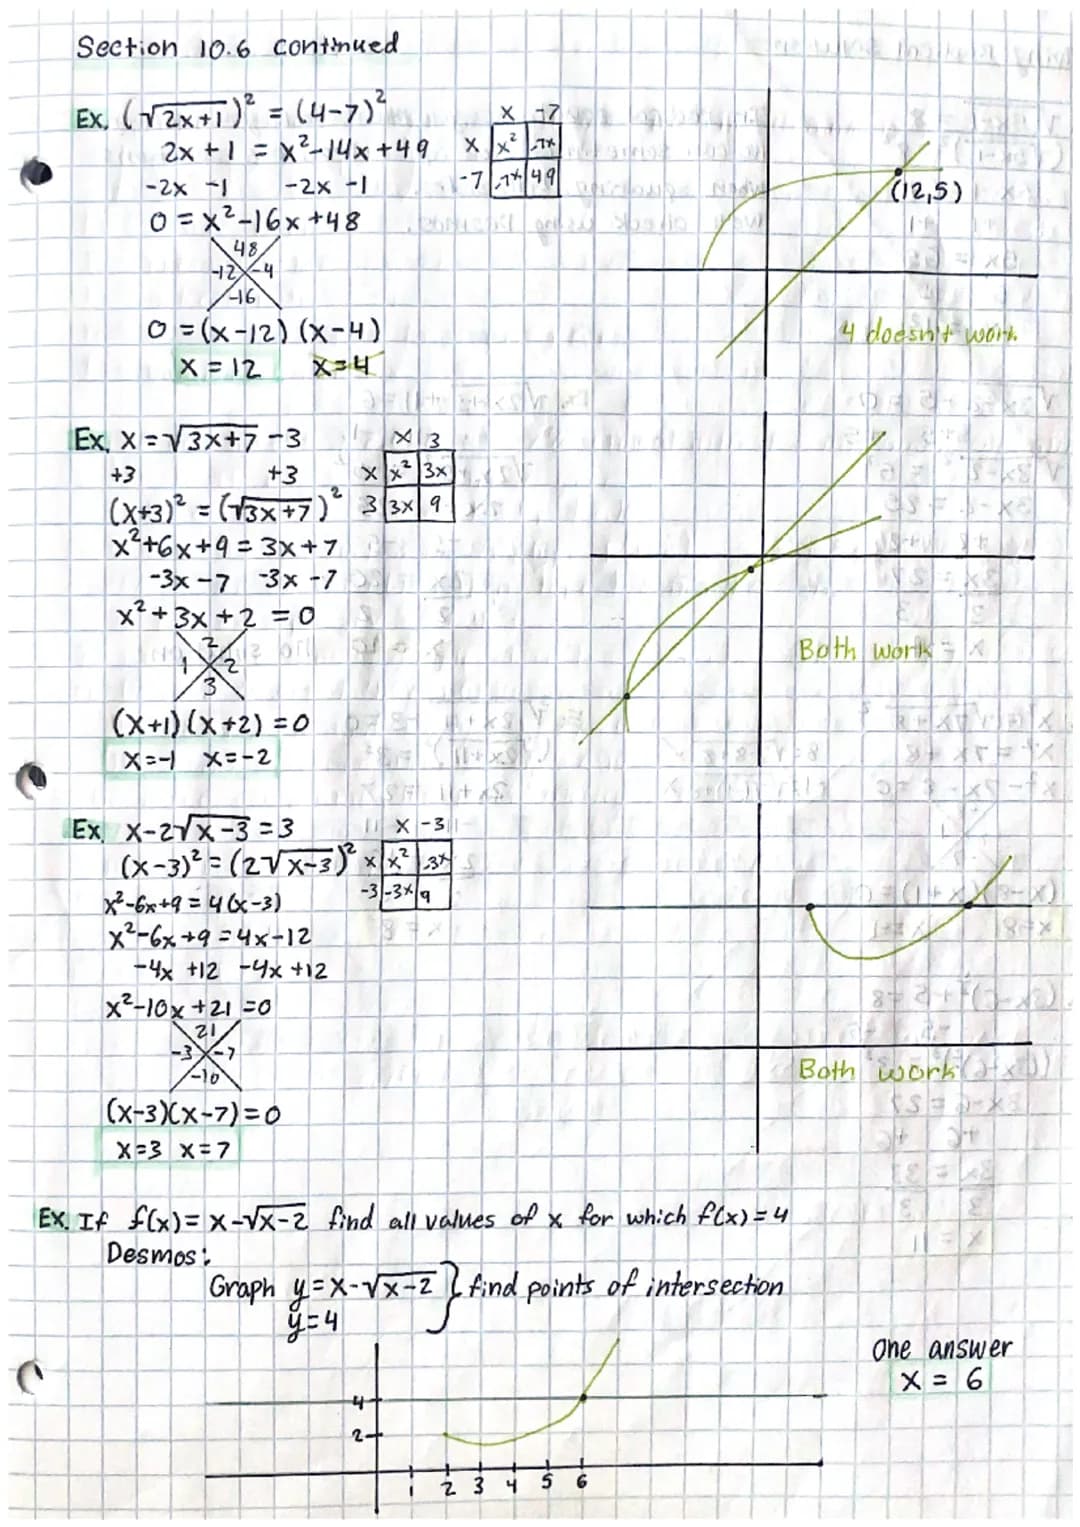 Section 10.6 continued
Ex. (√2x+1)² = (4-7)²
2x + 1 = x²-14x+49
-2x -1 -2x -1
0 = x²-16x+48
48
-12 -4
-16
0 = (x-12) (x-4)
x = 12 x=4
x -7
x x² -7x
-7 -7x 49
(12,5)
4 doesn't work
Ex. x = √3x+7 -3
+3 +3
(x+3)² = (√3x+7)²
x²+6x+9 = 3x+7
-3x -7 -3x -7
x² + 3x + 2 = 0
2
1 2
3
(x+1) (x+2) = 0
x=-1 x=-2
x 3
x x² 3x
3 3x 9
Both work
Ex. x-2√x-3 = 3
(x-3)² = (2√x-3)²
x²-6x+9 = 4(x-3)
x²-6x+9 = 4x-12
-4x +12 -4x +12
x²-10x+21 =0
21
-3 -7
-10
(x-3)(x-7)=0
x=3 x=7
x -3
x x² -3x
-3 -3x 9
Both work
Ex. If f(x)= x-√x-2 find all values of x for which f(x)=4
Desmos:
Graph y=x-√x-2 } find points of intersection
y=4
one answer
x = 6
4
2
1 2 3 4 5 6